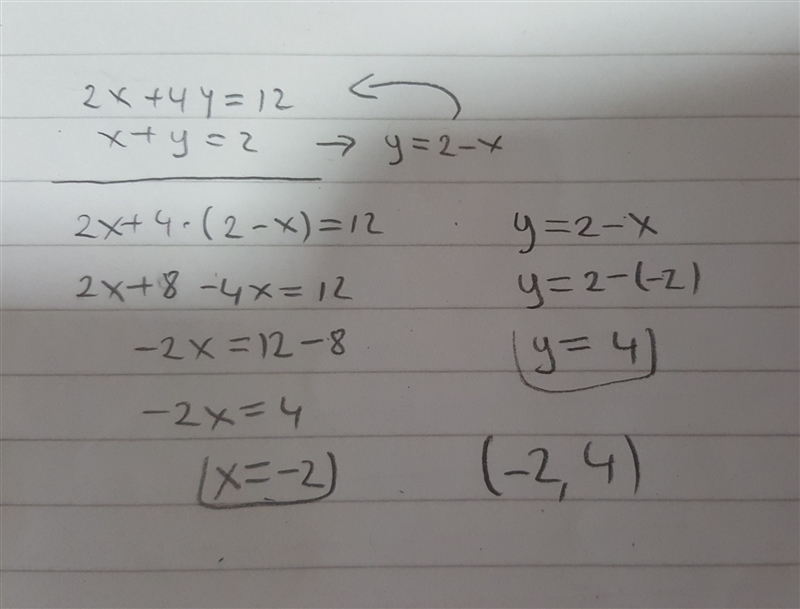 2x+4y=12
x+y=2 → y=2-x
2x+4·(2-x)=12
2x+8-4x=12
-2x=12-8
-2x=4
x=-2
y=2-x
y=2-(-2)
y=4
(-2,4)